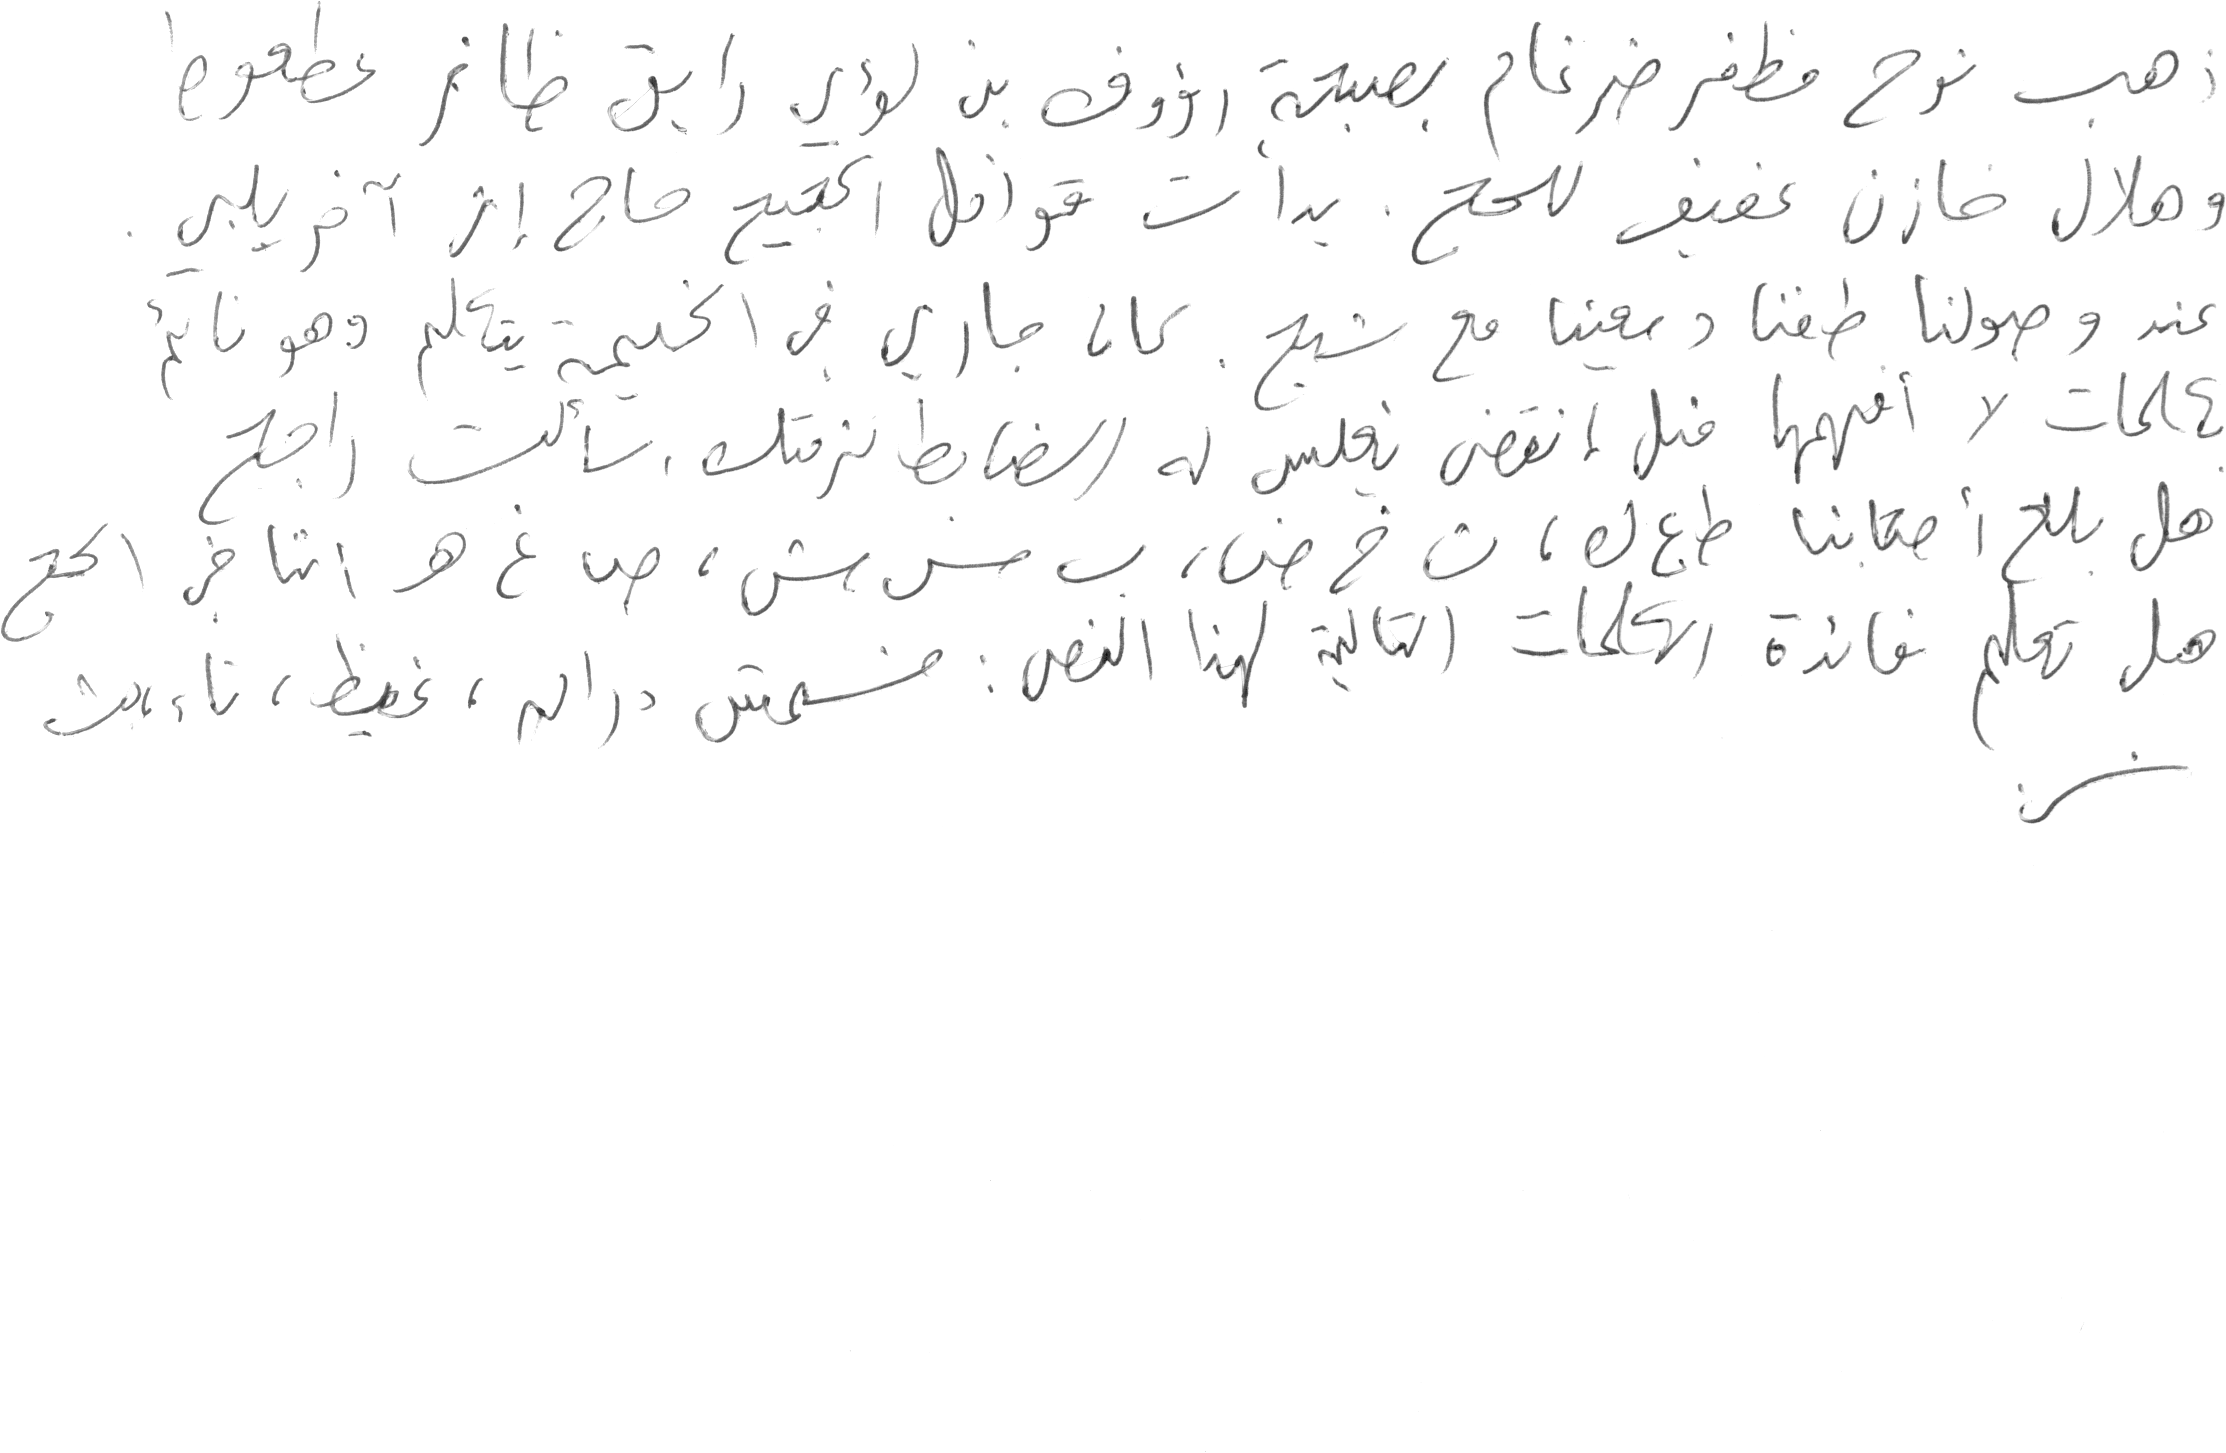 ذهب نوح مظفر ضرغام بصحبة رؤوف بن لؤي رايق ظافر عطعوط
وهلال خازن عفيف للحج . بدأت قوافل الحجيج حاج إثر آخر يلبي .
عند وصولنا طفنا وسعينا مع شيخ . كان جاري في الخيمة يتكلم وهو نائم
بكلمات لا أفهمها مثل إنقض نجلس له الضابط نزمتك . سألت راجح
هل بلع أصحابنا ط ع ك ، ث خ ض ، ب س ش ، ص غ هـ اثنا في الحج
هل تعلم فائدة الكلمات التالية لهذا النص : دراهم ، غيظ ،